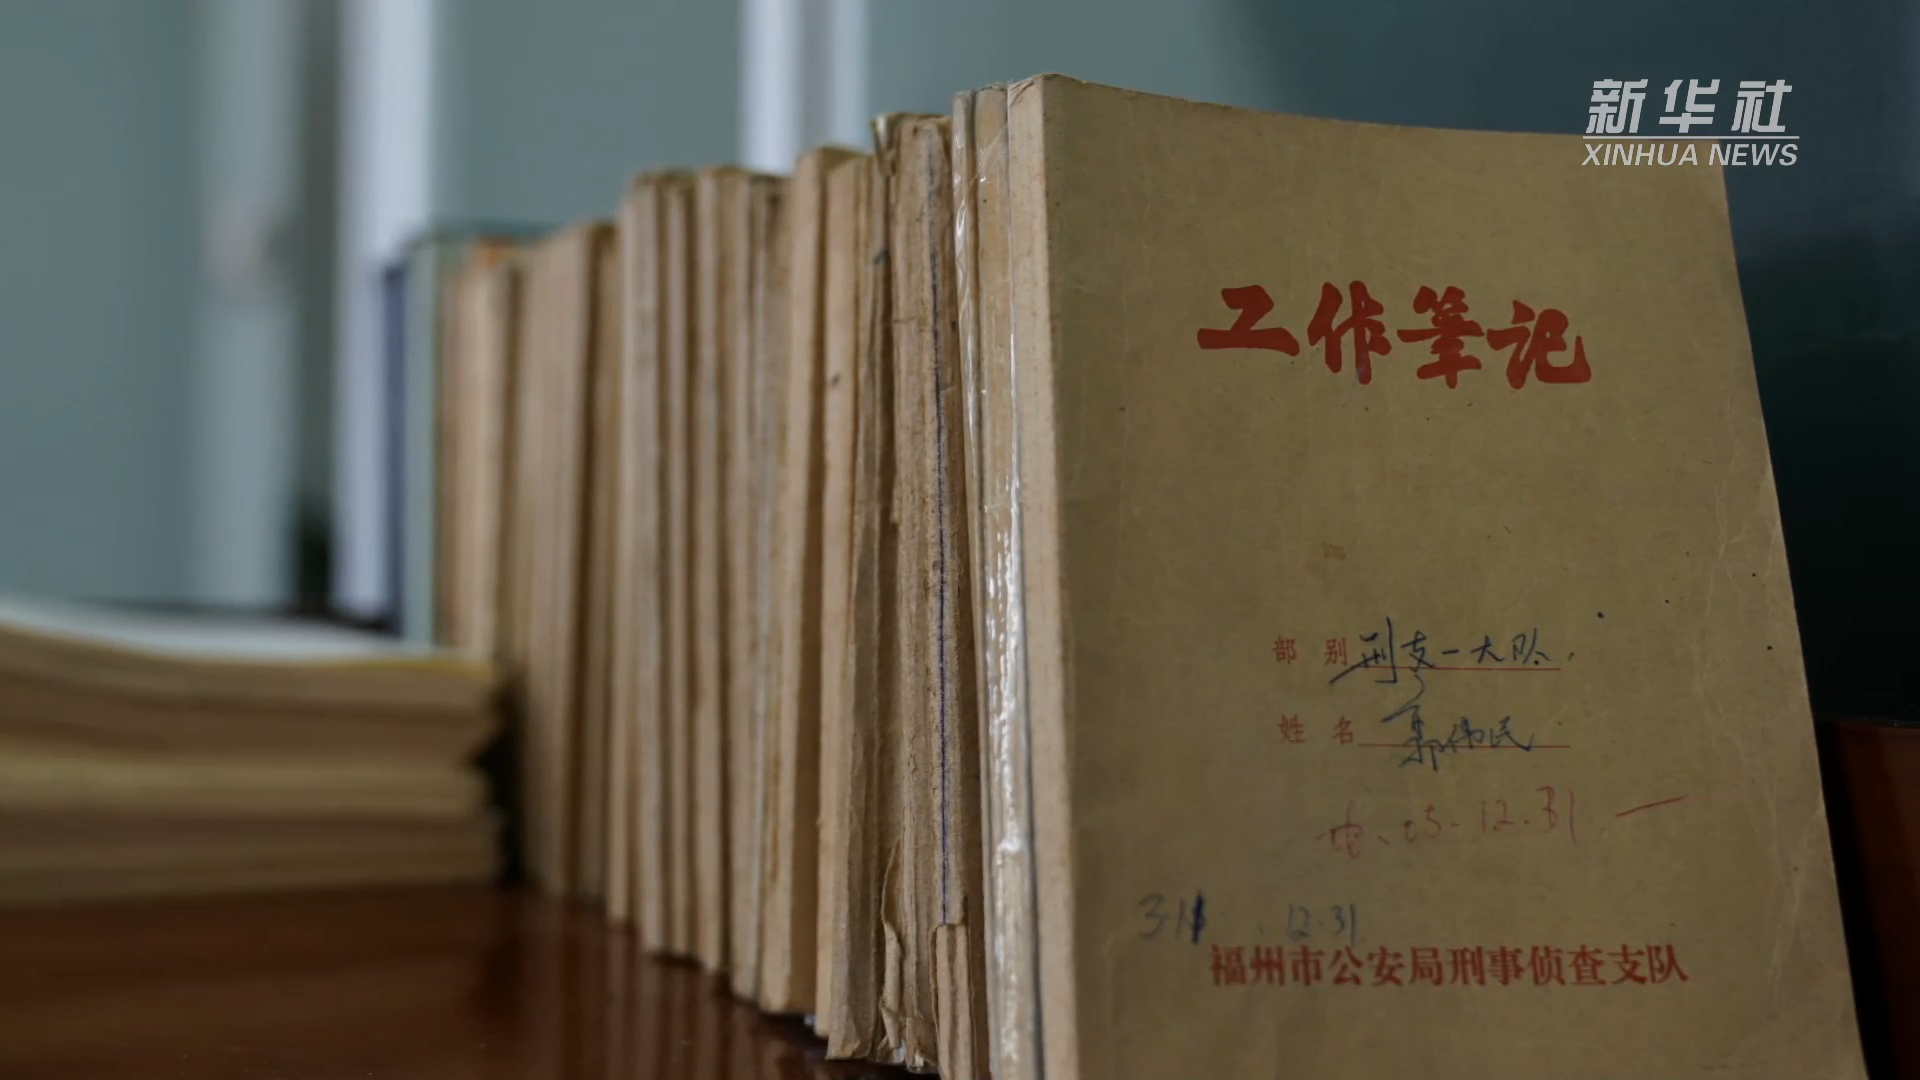 新华社
XINHUA NEWS
工作笔记
部 别 刑支一大队.
姓 名 郭伟民
12.31 —
3.11 12.31
福州市公安局刑事侦查支队